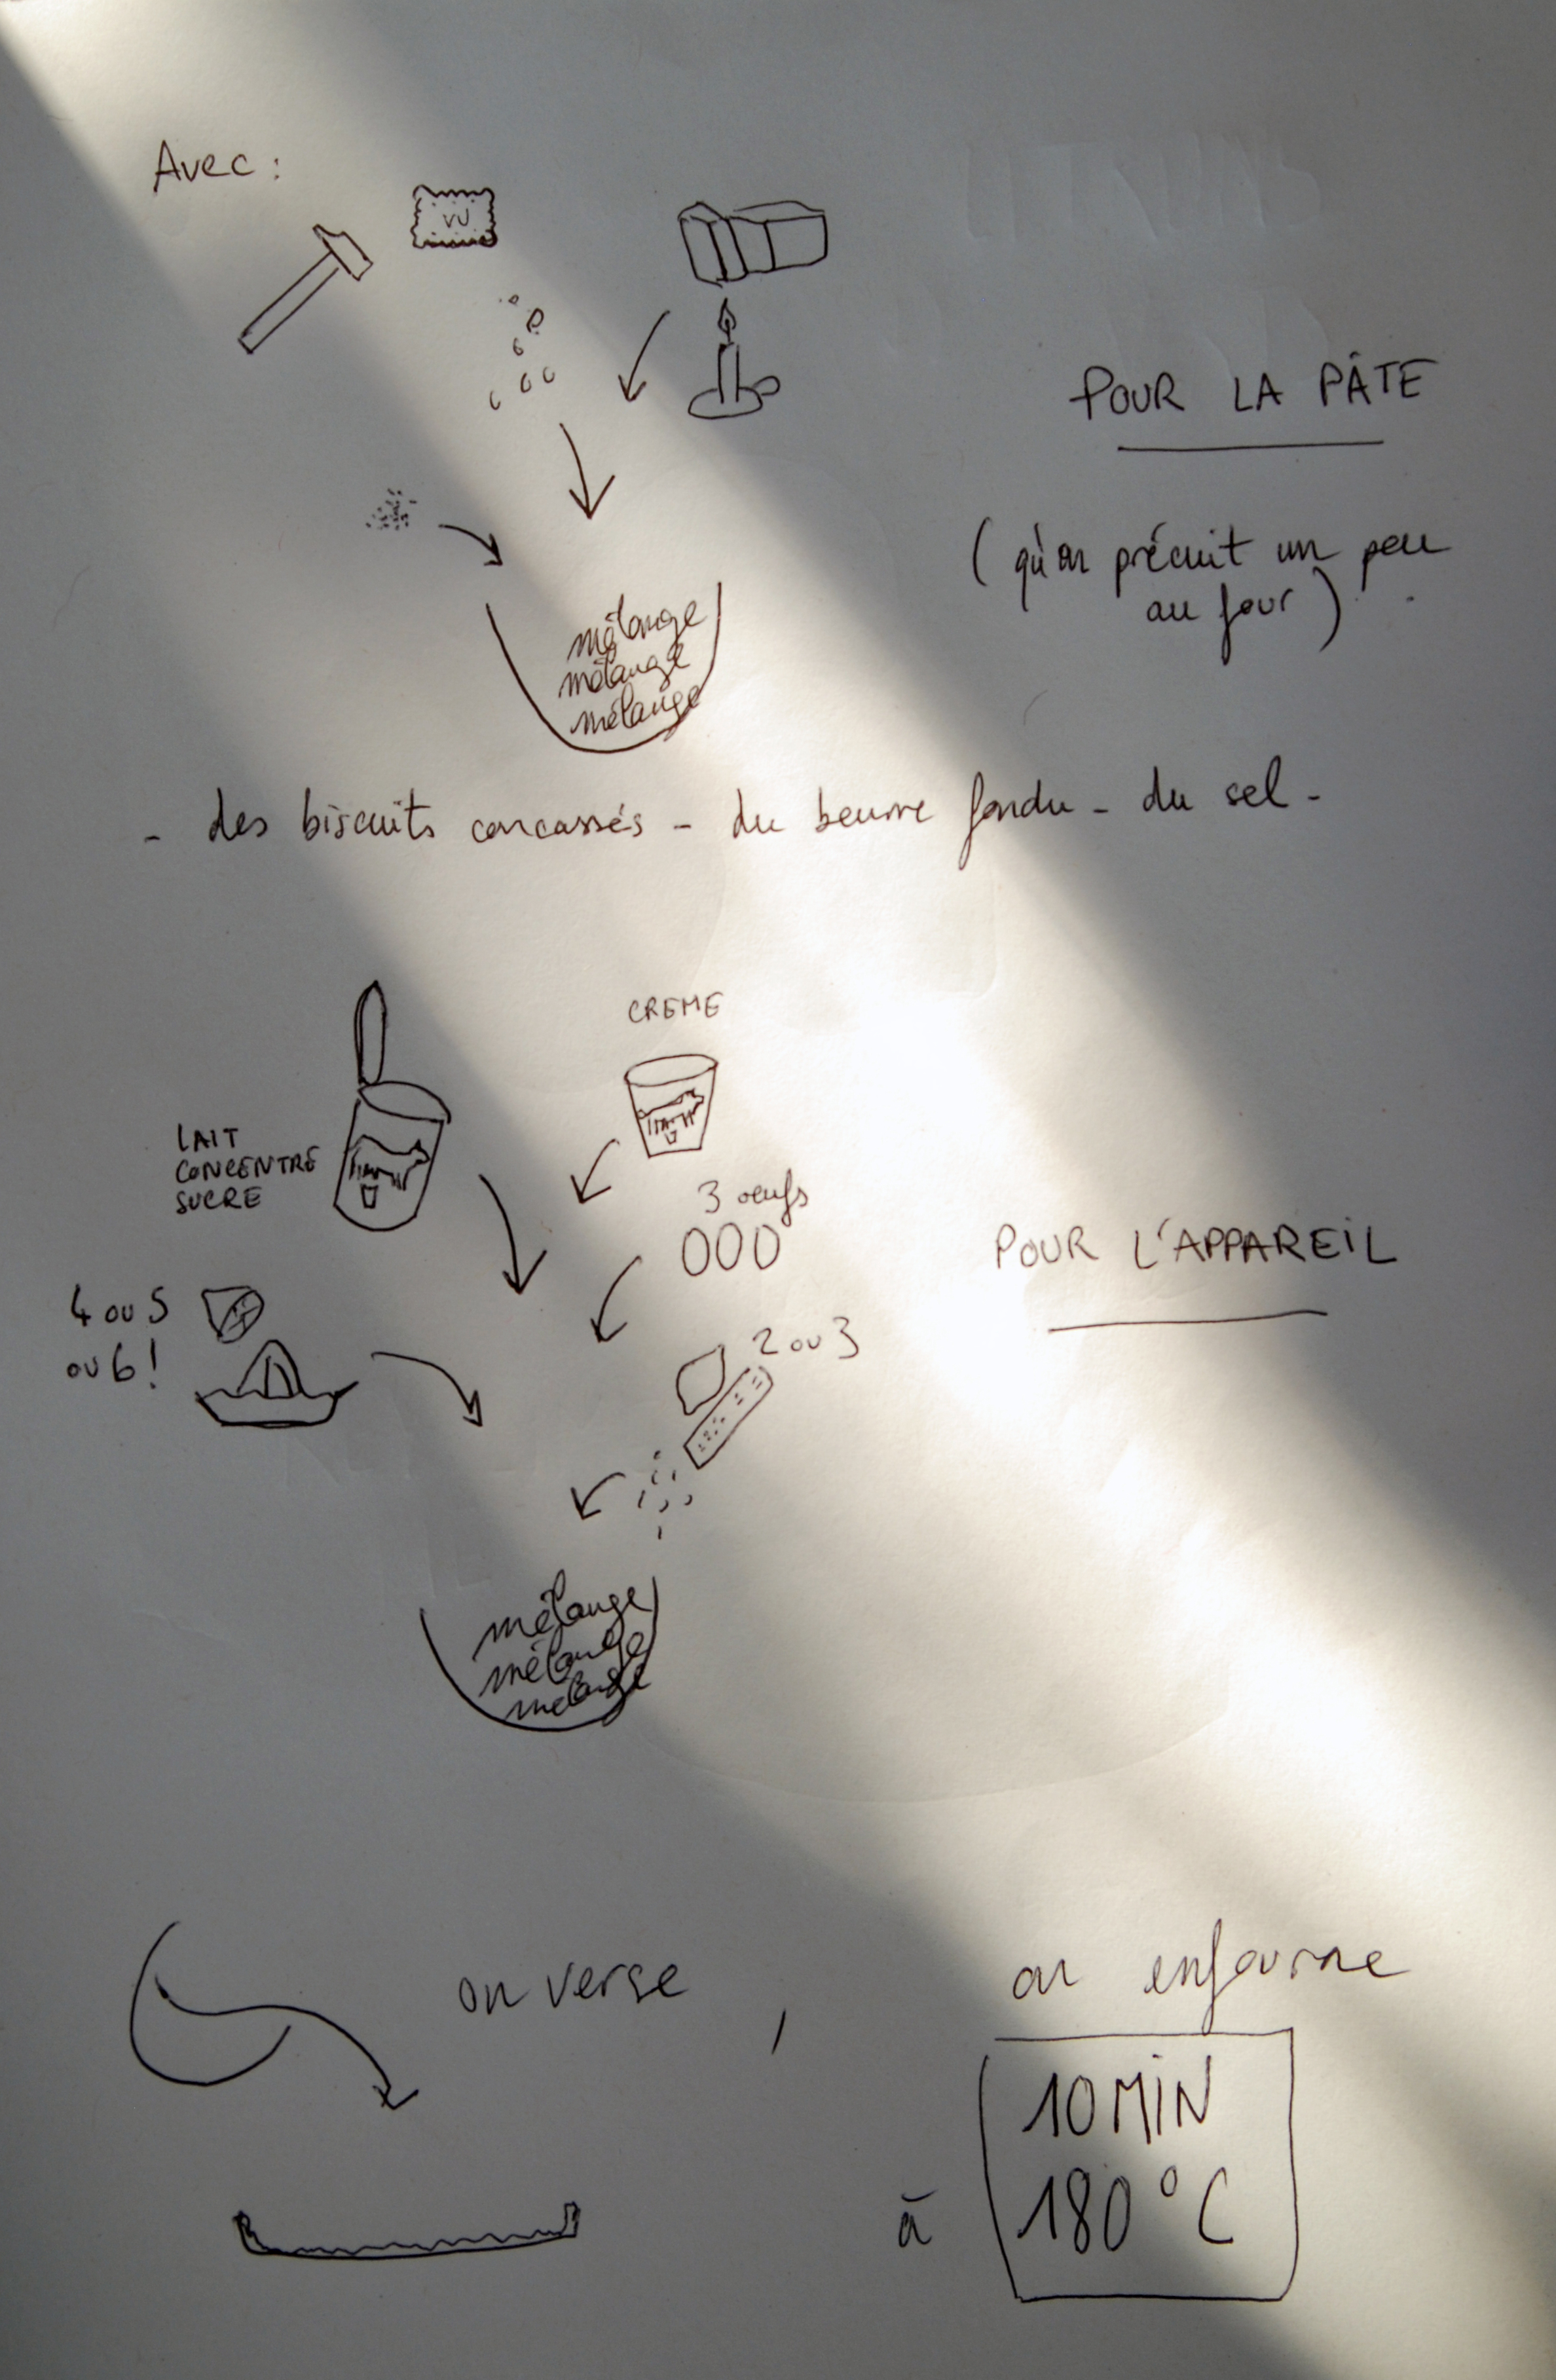 Avec :
VU
POUR LA PÂTE
(qu'on précuit un peu
au four)
mélange
mélange
mélange
- des biscuits concassés - du beurre fondu - du sel -
CREME
LAIT
CONCENTRE
SUCRE
3 oeufs
POUR L'APPAREIL
4 ou 5
ou 6 !
2 ou 3
mélange
mélange
mélange
on verse , on enfourne
10 MIN
à 180°C